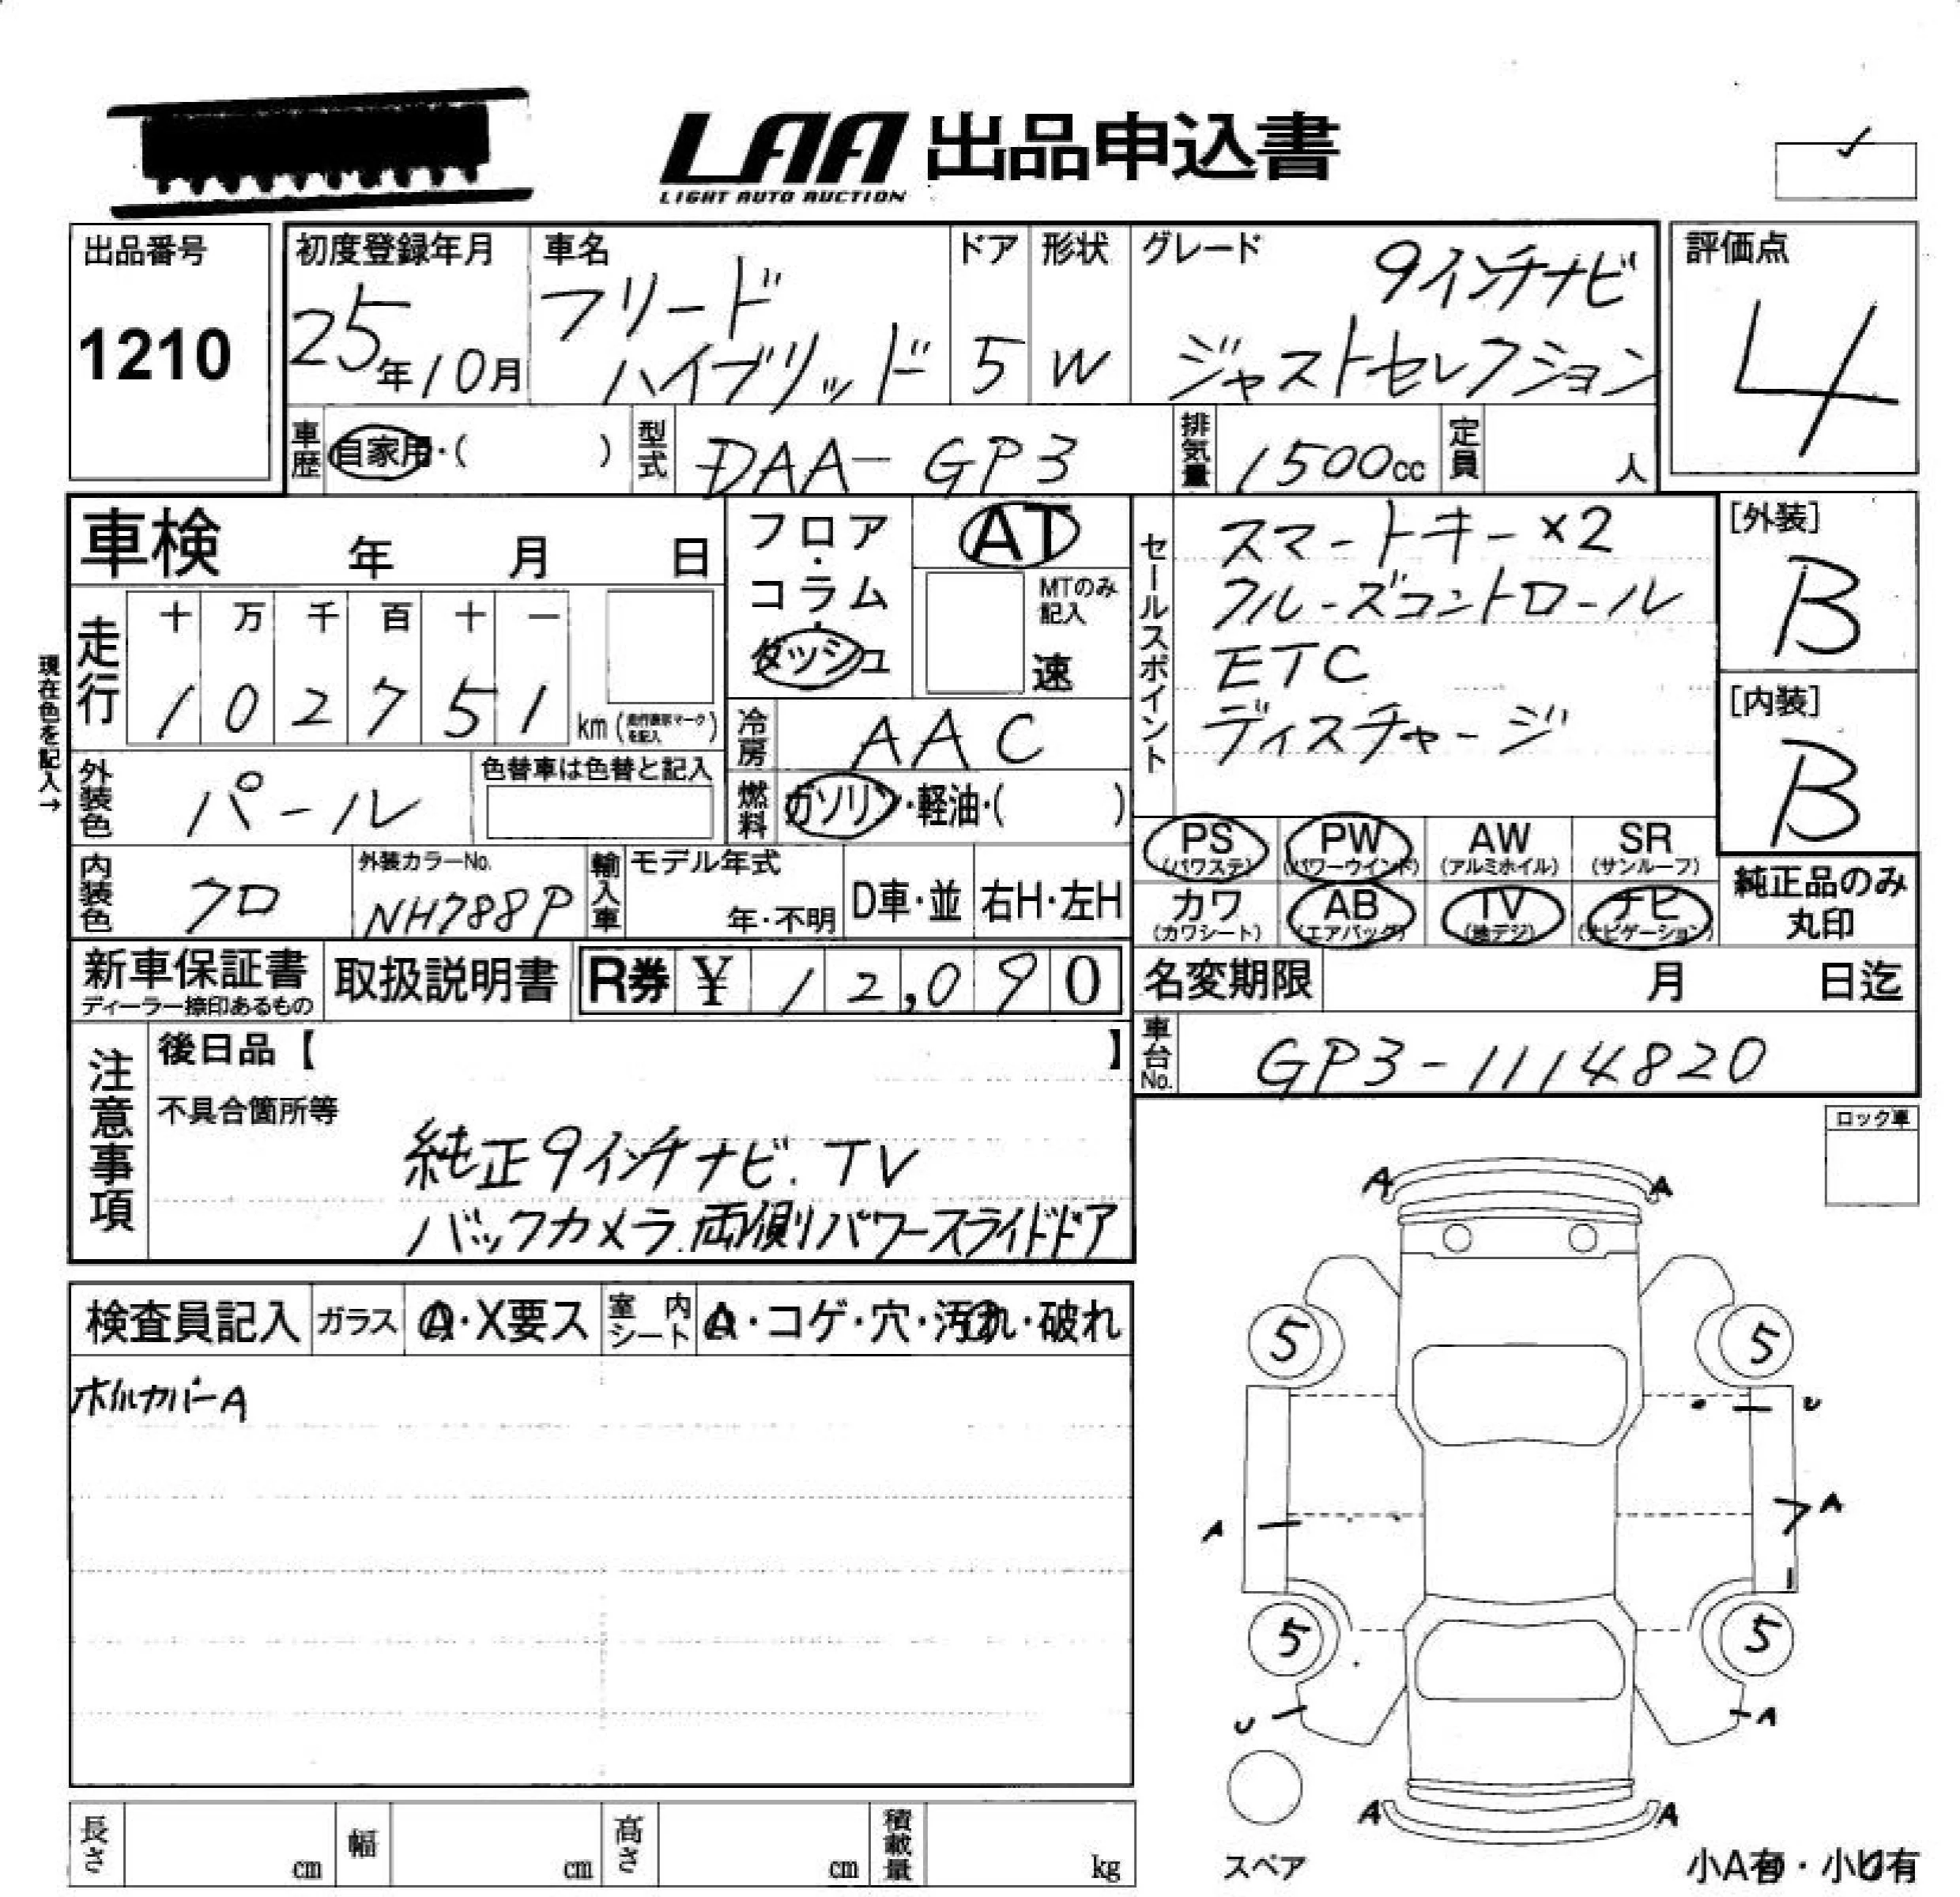 LAA 出品申込書
LIGHT AUTO AUCTION
出品番号
1210
初度登録年月
25年10月
車名
フリード
ハイブリッド
ドア
5
形状
W
グレード
9インチナビ
ジャストセレクション
評価点
4
車歴
自家用・( )
型式
DAA-GP3
排気量
1500cc
定員
人
車検 年 月 日
フロア・コラム・ダッシュ
AT
MTのみ記入
速
セールスポイント
スマートキー×2
クルーズコントロール
ETC
ディスチャージ
[外装]
B
[内装]
B
現在色を記入→
走行
十 万 千 百 十 一
1 0 2 7 5 1
km(走行表示マークを記入)
冷房
AAC
外装色
パール
色替車は色替と記入
燃料
ガソリン・軽油・( )
PS
(パワステ)
PW
(パワーウインド)
AW
(アルミホイル)
SR
(サンルーフ)
カワ
(カワシート)
AB
(エアバッグ)
TV
(地デジ)
ナビ
(ナビゲーション)
純正品のみ
丸印
内装色
クロ
外装カラーNo.
NH788P
輸入車
モデル年式
年・不明
D車・並
右H・左H
新車保証書
ディーラー捺印あるもの
取扱説明書
R券 ¥ 12,090
名変期限 月 日迄
車台No.
GP3-1114820
注意事項
後日品【 】
不具合箇所等
純正9インチナビ.TV
バックカメラ.両側パワースライドドア
ロック車
検査員記入
ガラス
A・X要ス
室内シート
A・コゲ・穴・汚れ・破れ
ホイルカバーA
A A
5 5
U
A A
5 5
U A
A A
スペア
小A有・小U有
長さ cm
幅 cm
高さ cm
積載量 kg